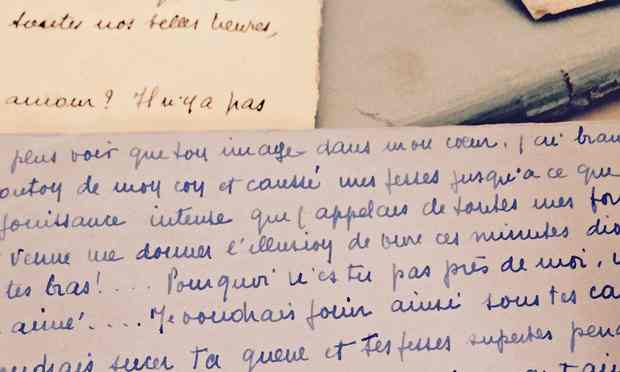 toutes nos belles heures,
amour? Il n'y a pas
peux voir que ton image dans mon cœur. j'ai bran
outon de mon con et caressé mes fesses jusqu'à ce que
jouissance intense que j'appelais de toutes mes for
venue me donner l'illusion de vivre ces minutes di
tes bras!.... Pourquoi n'es tu pas près de moi,
aimé.... Je voudrais jouir ainsi sous tes ca
oudrais sucer ta queue et tes fesses superbes pend